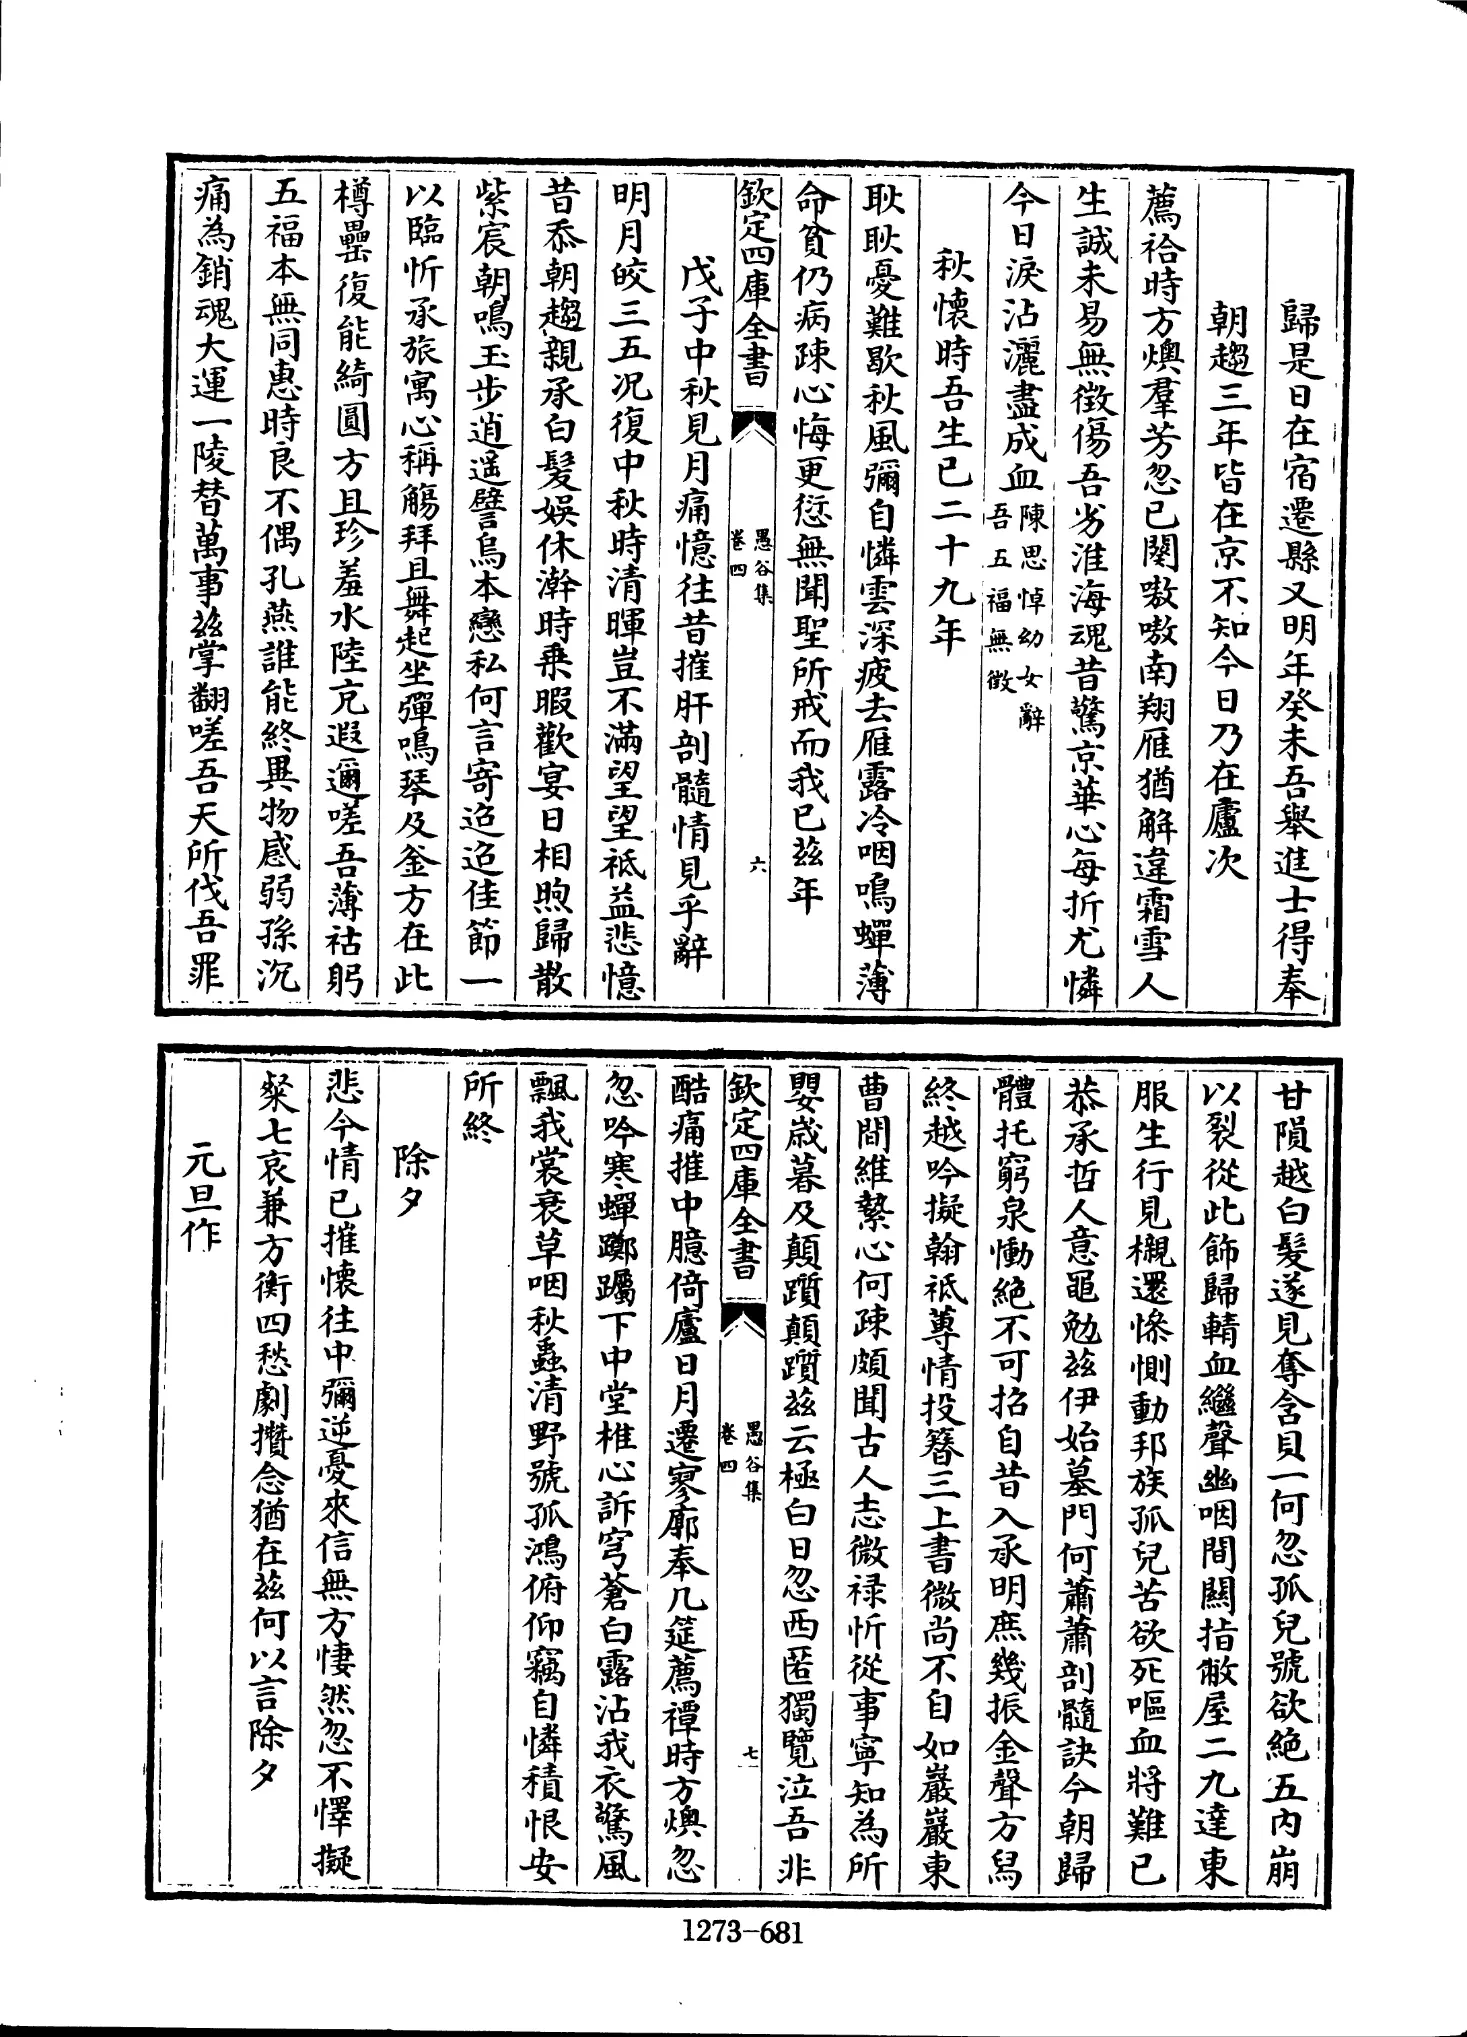 歸是日在宿遷縣又明年癸未吾舉進士得奉
朝趨三年皆在京不知今日乃在廬次
薦祫時方燠羣芳忽已闋嗷嗷南翔雁猶解違霜雪人
生誠未易無徵傷吾劣淮海魂昔驚京華心每折尤憐
今日淚沾灑盡成血陳思悼幼女辭
吾五福無徵
秋懷時吾生已二十九年
耿耿憂難歇秋風彌自憐雲深疲去雁露冷咽鳴蟬薄
命貧仍病疎心悔更愆無聞聖所戒而我已茲年
欽定四庫全書
愚谷集
卷四
六
戊子中秋見月痛憶往昔摧肝剖髓情見乎辭
明月皎三五况復中秋時清暉豈不滿望望祗益悲憶
昔忝朝趨親承白髮娛休澣時乘暇歡宴日相煦歸散
紫宸朝鳴玉步逍遥譬烏本戀私何言寄迢迢佳節一
以臨忻承旅寓心稱觴拜且舞起坐彈鳴琴及釜方在此
樽罍復能綺圓方且珍羞水陸充遐邇嗟吾薄祜躬
五福本無同惠時良不偶孔燕誰能終異物感弱孫沉
痛為銷魂大運一陵替萬事茲掌翻嗟吾天所伐吾罪
甘隕越白髮遂見奪含貝一何忽孤兒號欲絶五内崩
以裂從此飾歸輤血繼聲幽咽間關指敝屋二九達東
服生行見櫬還慘惻動邦族孤兒苦欲死嘔血將難已
恭承哲人意黽勉茲伊始墓門何蕭蕭剖髓訣今朝歸
體托窮泉慟絶不可招自昔入承明庶幾振金聲方舄
終越吟擬翰祗蓴情投簪三上書微尚不自如巖巖東
曹間維縶心何疎頗聞古人志微禄忻從事寧知為所
嬰歲暮及顛躓顛躓茲云極白日忽西匿獨覽泣吾非
欽定四庫全書
愚谷集
卷四
七
酷痛摧中臆倚廬日月遷寥廓奉几筵薦禫時方燠忽
忽吟寒蟬躑躅下中堂椎心訴穹蒼白露沾我衣驚風
飄我裳衰草咽秋蟲清野號孤鴻俯仰竊自憐積恨安
所終
除夕
悲今情已摧懷往中彌逆憂來信無方悽然忽不懌擬
粲七哀兼方衡四愁劇攢念猶在茲何以言除夕
元旦作
1273-681